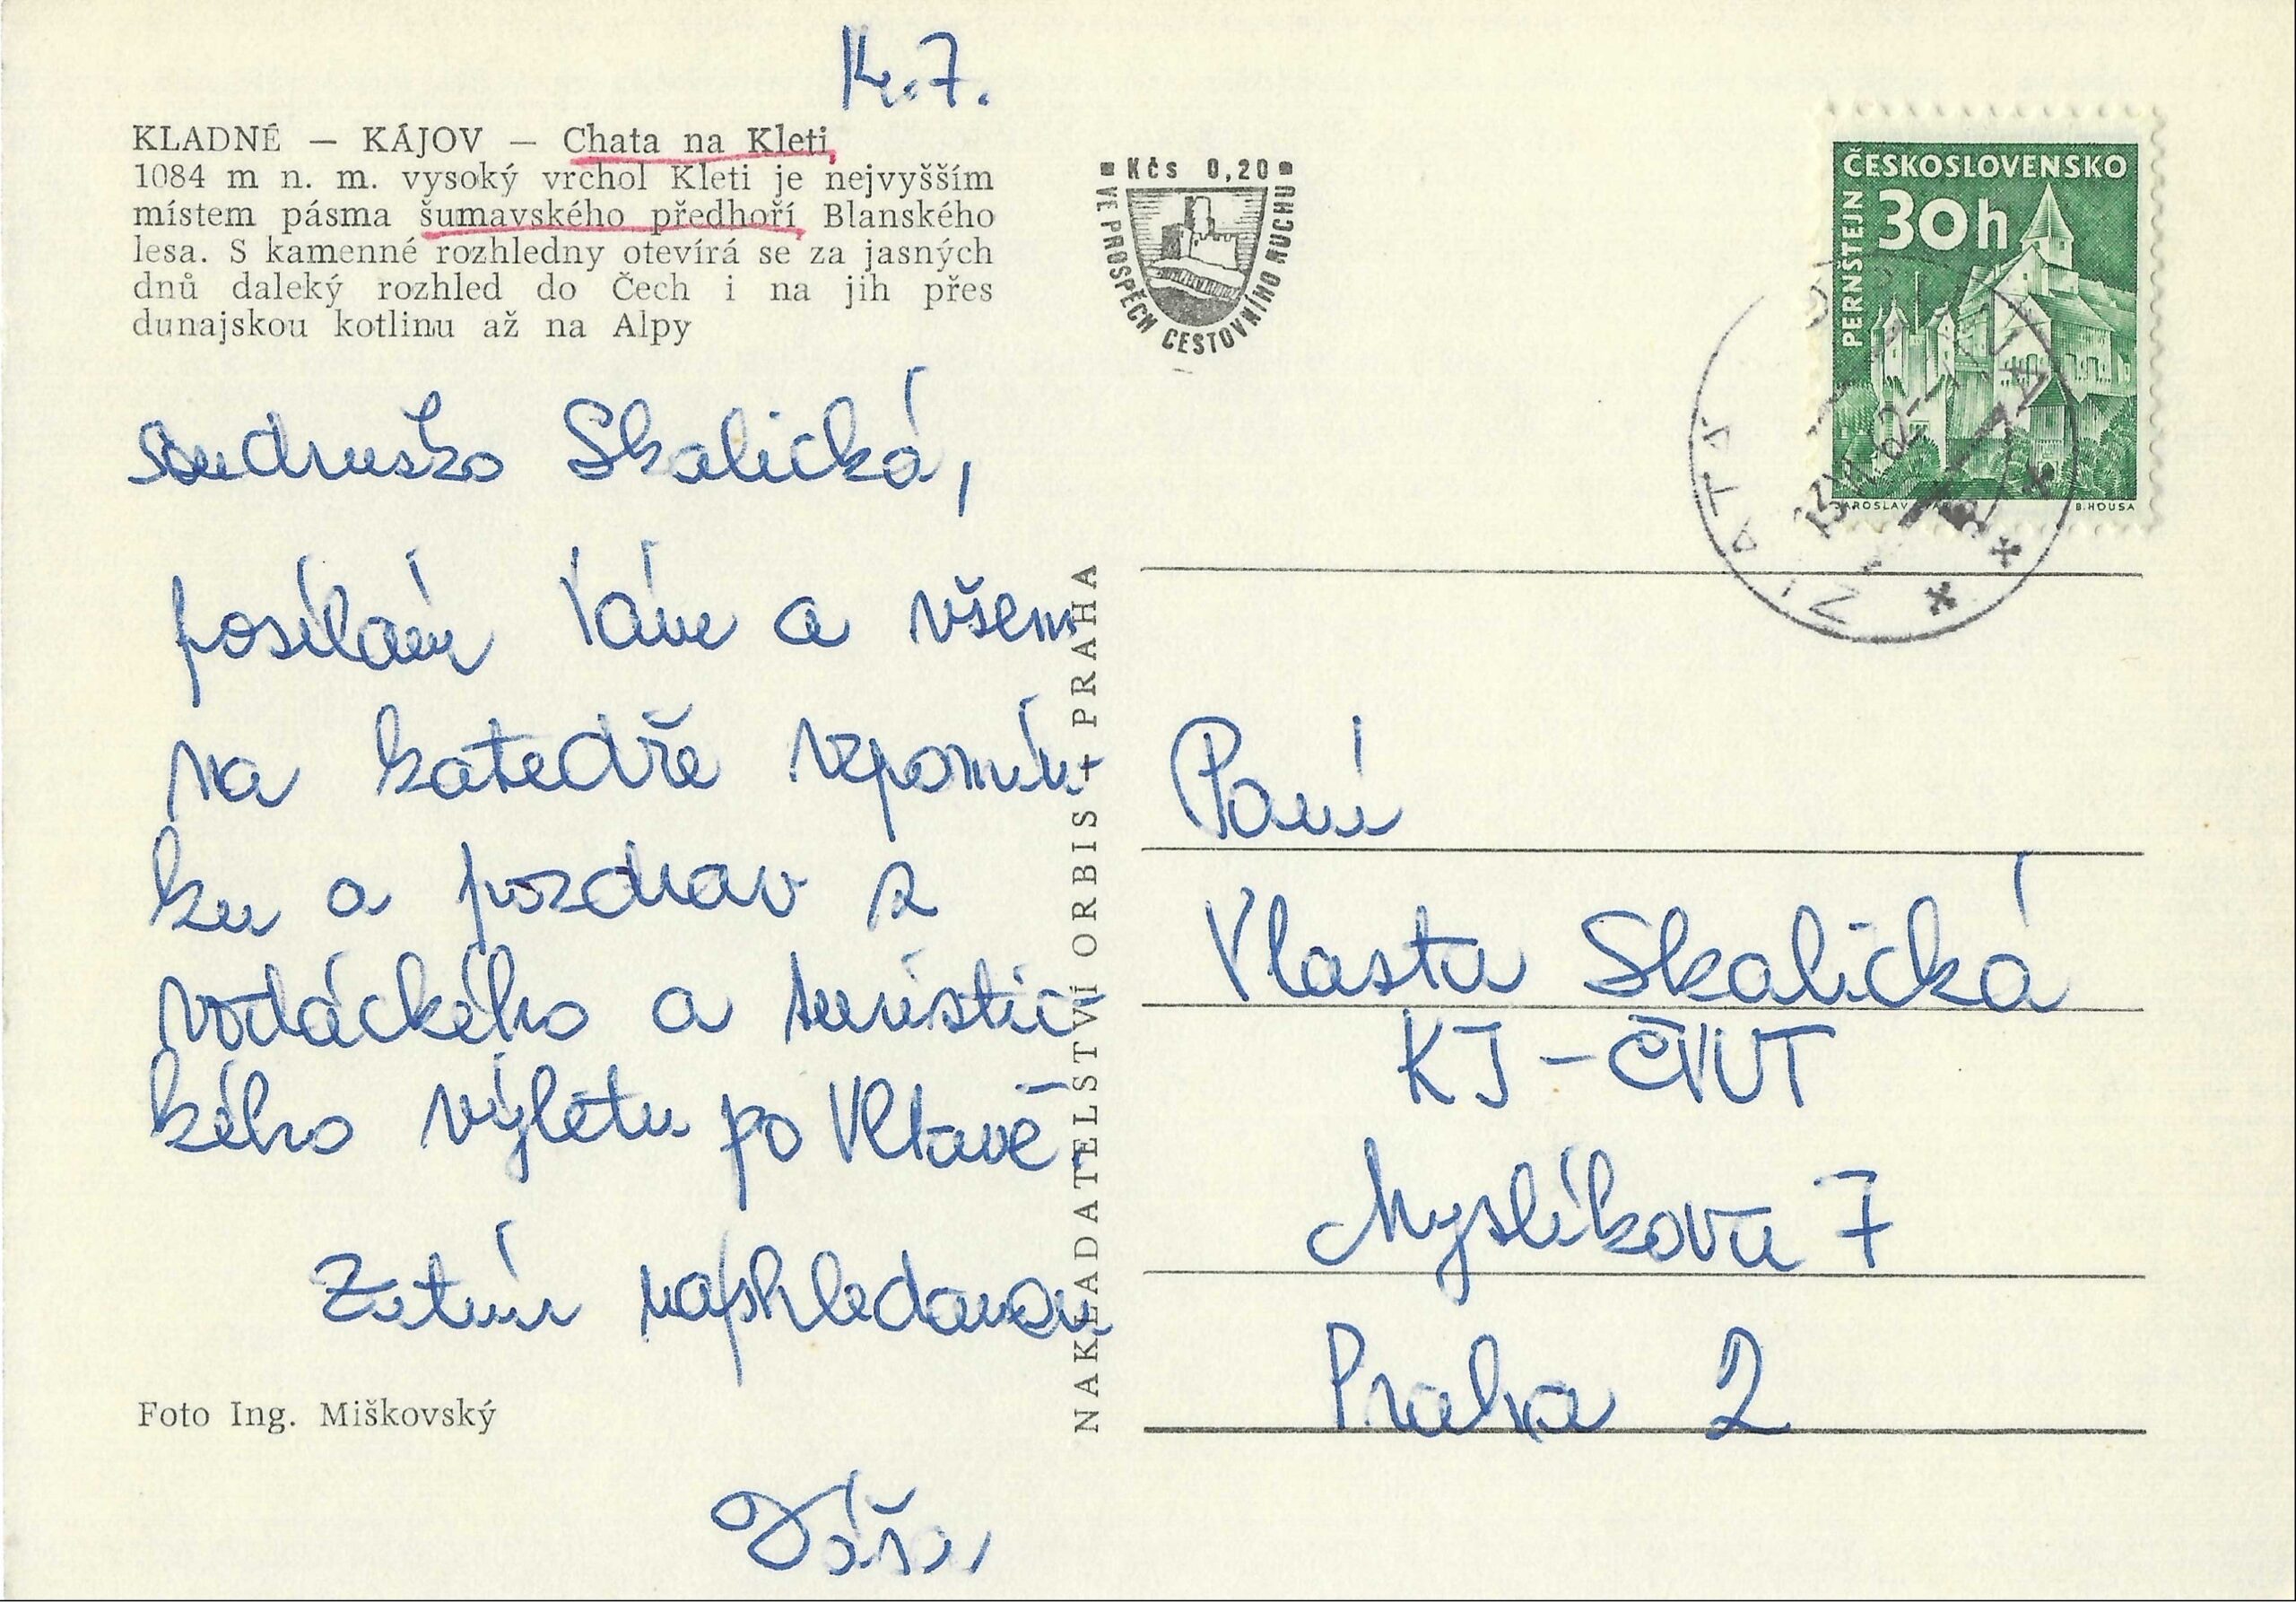 14.7.
KLADNÉ — KÁJOV — Chata na Kleti
1084 m n. m. vysoký vrchol Kleti je nejvyšším
místem pásma šumavského předhoří Blanského
lesa. S kamenné rozhledny otevírá se za jasných
dnů daleký rozhled do Čech i na jih přes
dunajskou kotlinu až na Alpy
soudružko Skalická,
posílám Vám a všem
na katedře vzpomín-
ku a pozdrav z
vodáckého a turistic-
kého výletu po Vltavě.
Zatím nashledanou
Foto Ing. Miškovský
Dáša
NAKLADATELSTVÍ ORBIS + PRAHA
Kčs 0,20
VE PROSPĚCH CESTOVNÍHO RUCHU
ČESKOSLOVENSKO
30h
PERNŠTEJN
JAROSLAV
B. HOUSA
Paní
Vlasta Skalická
KJ - ČVUT
Myslíkova 7
Praha 2